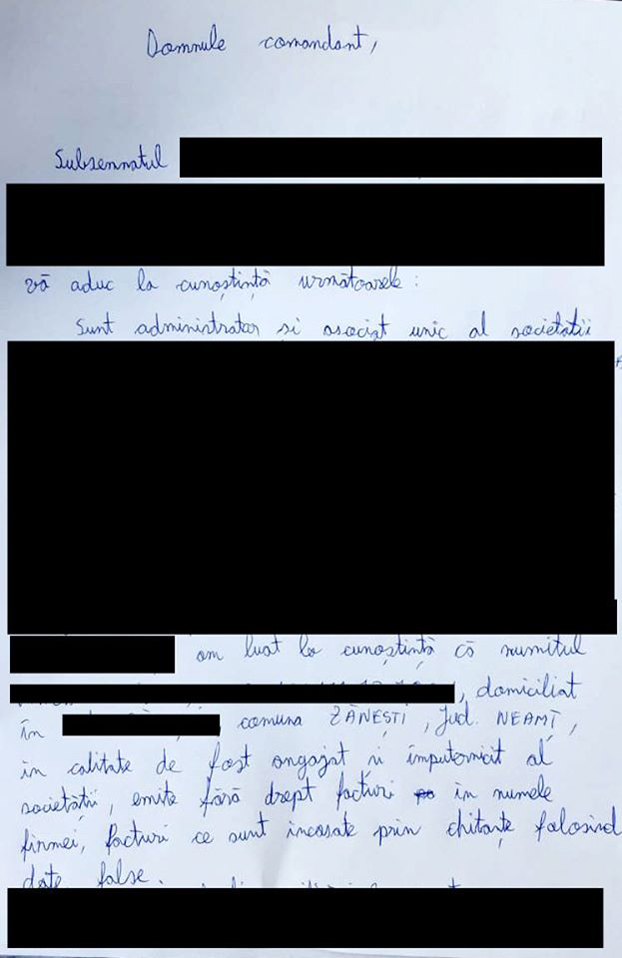 Domnule comandant,
Subsemnatul
vă aduc la cunoștință următoarele :
Sunt administrator și asociat unic al societății
am luat la cunoștință că numitul
, domiciliat
în comuna ZĂNEȘTI , jud. NEAMȚ ,
în calitate de fost angajat și împuternicit al
societății , emite fără drept facturi în numele
firmei, facturi ce sunt incasate prin chitanțe folosind
date false.